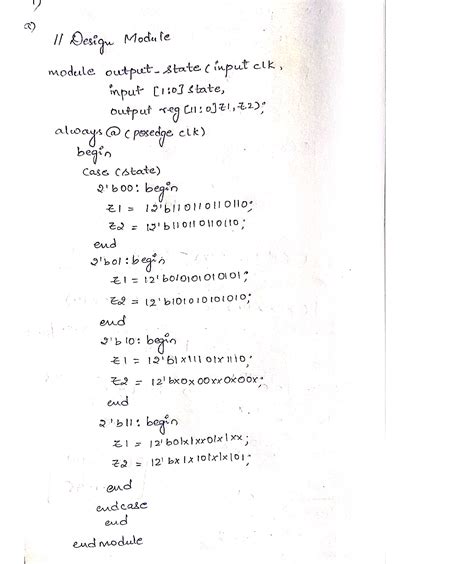 1)
2)
// Design Module
module output_state (input clk,
input [1:0] state,
output reg [11:0] z1, z2);
always @ (posedge clk)
begin
case (state)
2'b00: begin
z1 = 12'b110110110110;
z2 = 12'b110110110110;
end
2'b01: begin
z1 = 12'b010101010101;
z2 = 12'b101010101010;
end
2'b10: begin
z1 = 12'b1x11101x1110;
z2 = 12'bx0x00xx0x00x;
end
2'b11: begin
z1 = 12'b01x1xx01x1xx;
z2 = 12'bx1x101x1x101;
end
endcase
end
endmodule